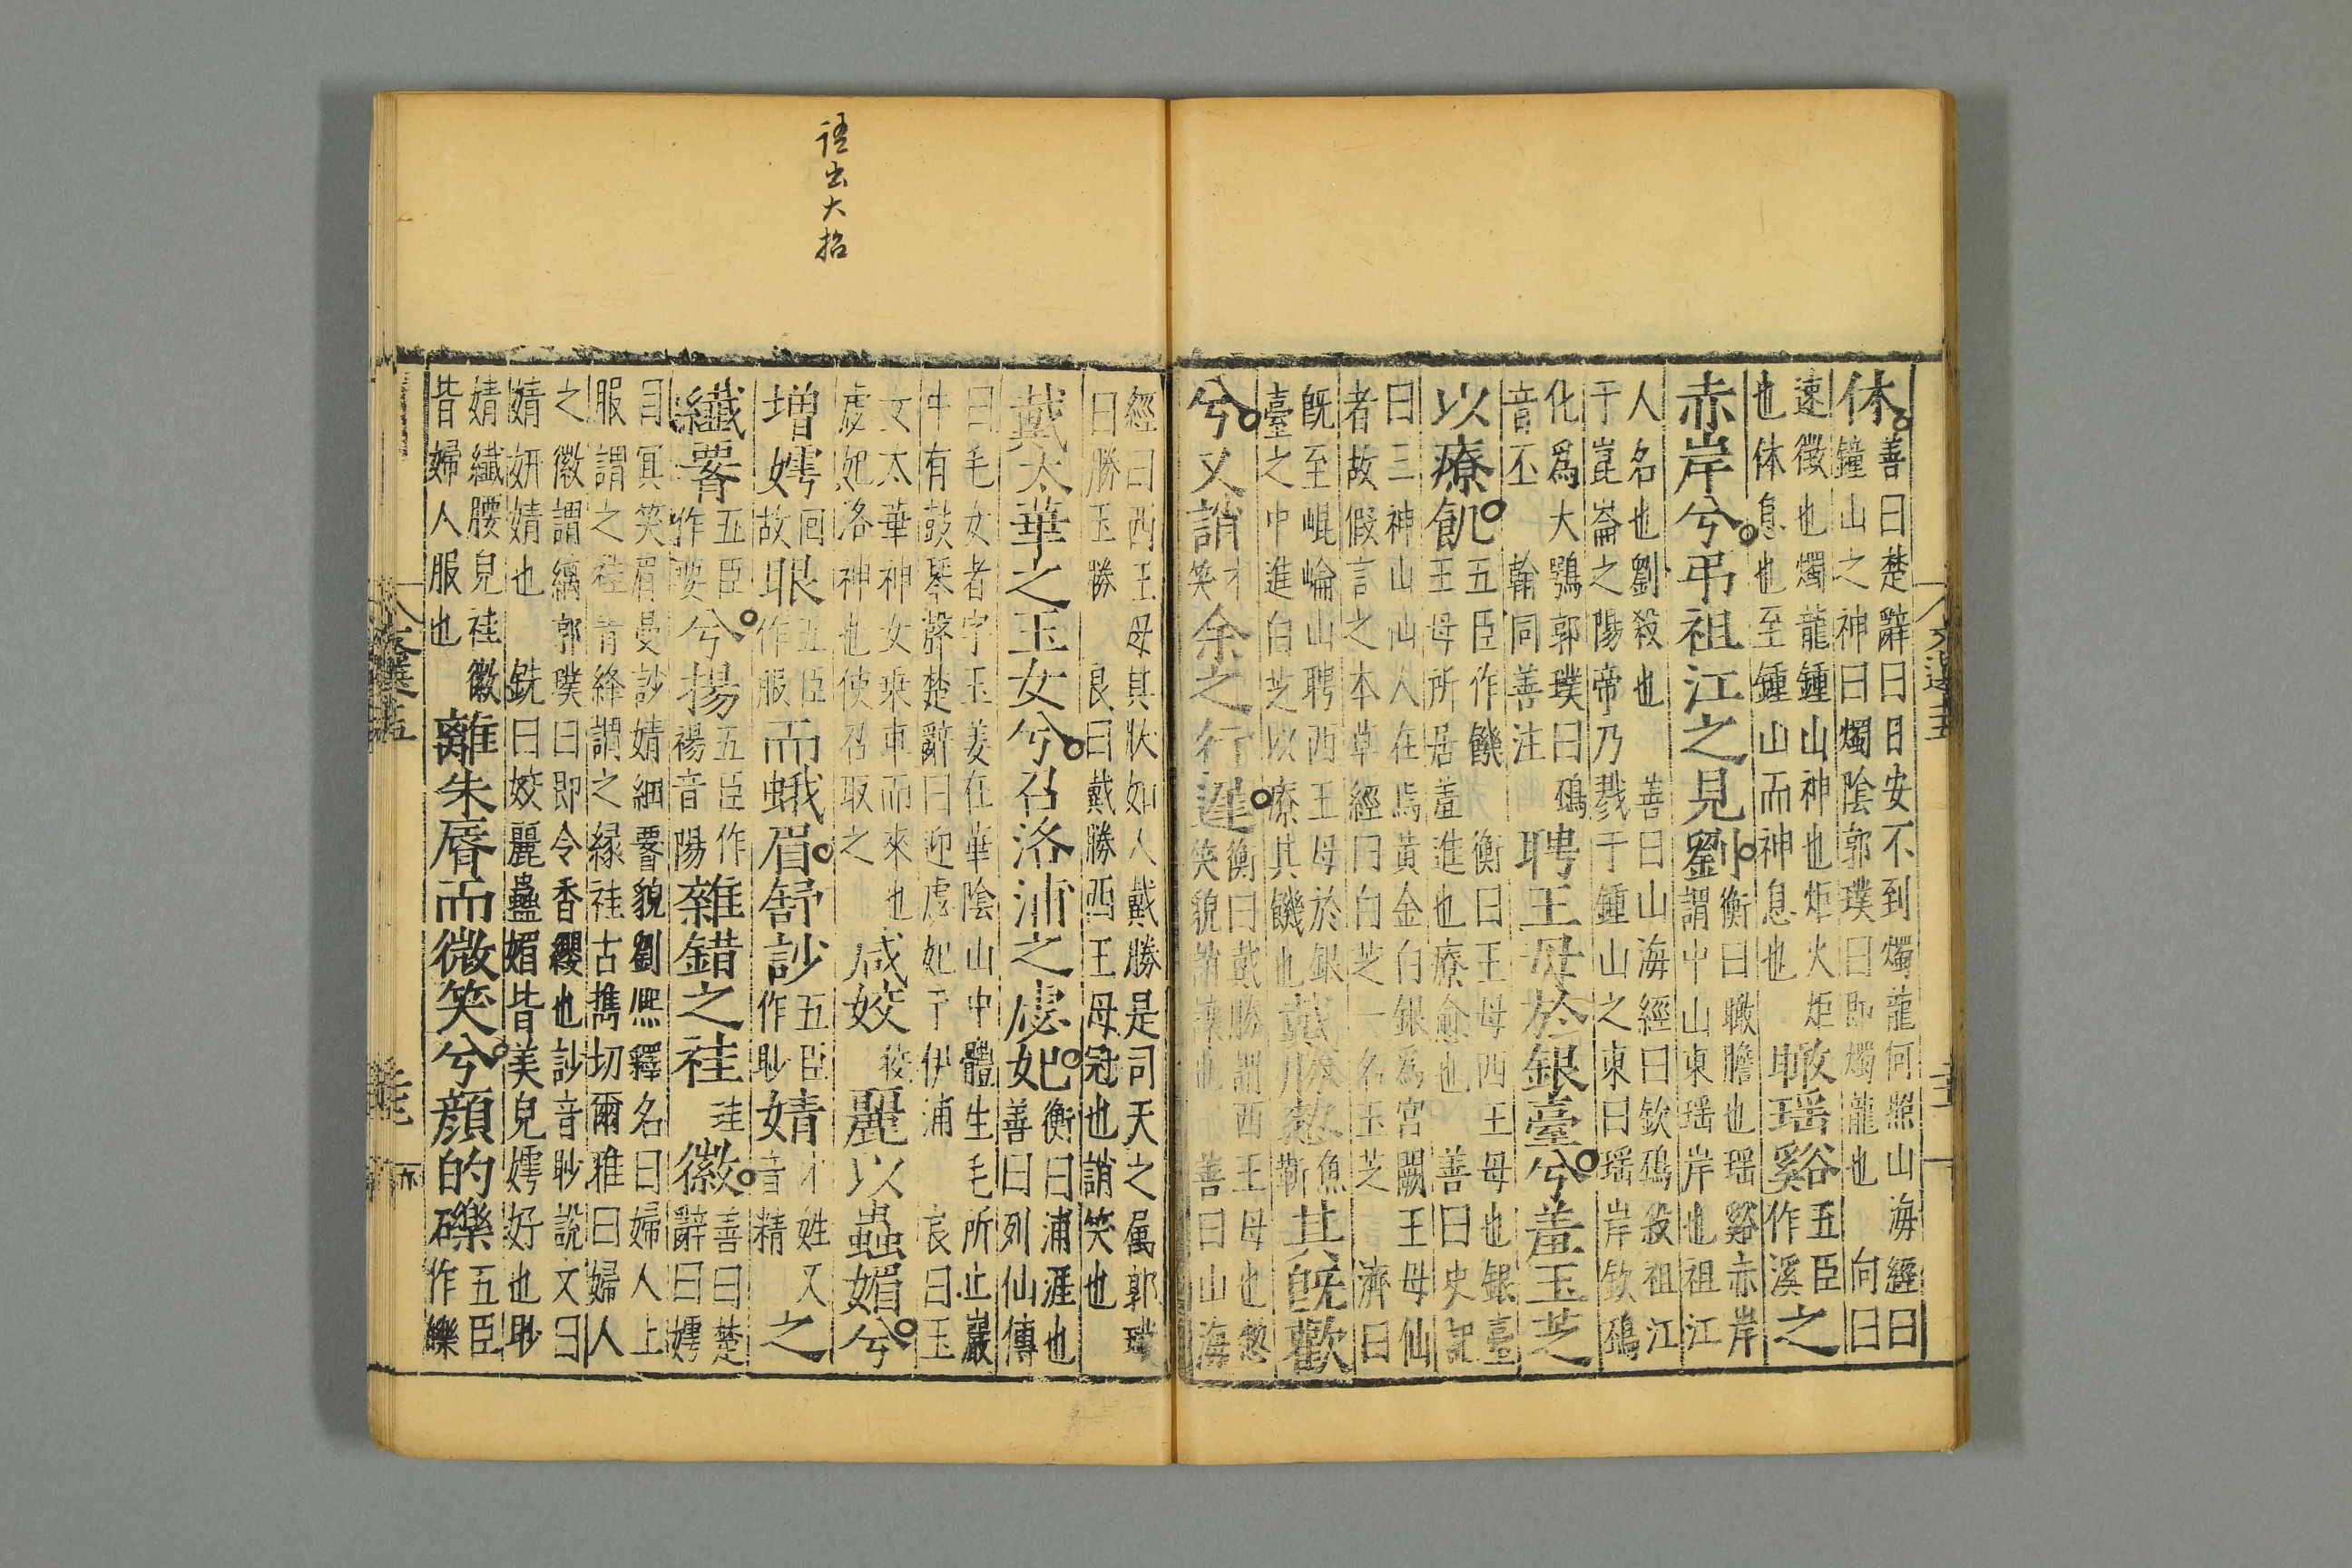 休善曰楚辭曰日安不到燭龍何照山海經曰
鐘山之神曰燭陰郭璞曰即燭龍也 向曰
速徵也燭龍鍾山神也炬火炬
也休息也至鍾山而神息也
瞰瑶谿五臣作溪之
赤岸兮弔祖江之見劉衡曰瞰瞻也瑶谿赤岸
謂中山東瑶岸也祖江
人名也劉殺也 善曰山海經曰欽䲹殺祖江
于崑崙之陽帝乃戮于鍾山之東曰瑶岸欽䲹
化爲大鶚郭璞曰䲹
音丕 翰同善注
聘王母於銀臺兮羞玉芝
以療飢五臣作饑 衡曰王母西王母也銀臺
王母所居羞進也療愈也 善曰史記
曰三神山仙人在焉黃金白銀爲宮闕王母仙
者故假言之本草經曰白芝一名玉芝 濟曰
既至崐崘山聘西王母於銀
臺之中進白芝以療其饑也
戴勝憖魚靳其既歡
兮又誚才笑余之行遲衡曰戴勝謂西王母也憖
笑貌誚讓也 善曰山海
經曰西王母其狀如人戴勝是司天之属郭璞
曰勝玉勝 良曰戴勝西王母冠也誚笑也
戴太華之玉女兮召洛浦之虙妃衡曰浦涯也
善曰列仙傳
曰毛女者字玉姜在華陰山中體生毛所止巖
中有鼓琴聲楚辭曰迎虙妃于伊浦 良曰玉
女太華神女乘車而來也
虙妃洛神也使召取之
咸姣㚣麗以蠱媚兮
增嫮回故眼五臣作服而蛾眉舒訬五臣作眇婧才姓又音精之
纎𦝫五臣作要兮揚五臣作禓音陽雜錯之袿珪徽善曰楚
辭曰嫮
目冥笑眉曼訬婧細𦝫貌劉熈釋名曰婦人上
服謂之袿音絳謂之緣袿古攜切爾雅曰婦人
之徽謂縭郭璞曰即今香纓也訬音眇說文曰
婧妍婧也 銑曰姣麗蠱媚皆美皃嫮好也眇
婧纎腰皃袿徽
皆婦人服也
離朱脣而微笑兮顔的礫五臣
作皪